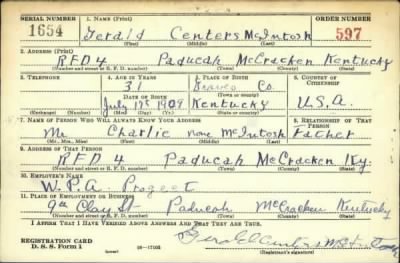 SERIAL NUMBER 1. NAME (Print) ORDER NUMBER
1654 Gerald Centers McIntosh 597
(First) (Middle) (Last)
2. ADDRESS (Print)
RFD 4 Paducah McCracken Kentucky
(Number and street or R. F. D. number) (Town) (County) (State)
3. TELEPHONE 4. AGE IN YEARS 5. PLACE OF BIRTH 6. COUNTRY OF CITIZENSHIP
31 Co.
DATE OF BIRTH (Town or county)
July 17 1909 Kentucky U.S.A.
(Exchange) (Number) (Mo.) (Day) (Yr.) (State or country)
7. NAME OF PERSON WHO WILL ALWAYS KNOW YOUR ADDRESS 8. RELATIONSHIP OF THAT PERSON
Mr. Charlie none McIntosh Father
(Mr., Mrs., Miss) (First) (Middle) (Last)
9. ADDRESS OF THAT PERSON
RFD 4 Paducah McCracken Ky.
(Number and street or R. F. D. number) (Town) (County) (State)
10. EMPLOYER'S NAME
W.P.A. Progect
11. PLACE OF EMPLOYMENT OR BUSINESS
9th Clay St Paducah McCracken Kentucky
(Number and street or R. F. D. number) (Town) (County) (State)
I AFFIRM THAT I HAVE VERIFIED ABOVE ANSWERS AND THAT THEY ARE TRUE.
REGISTRATION CARD
D. S. S. Form 1 16—17105 Gerald Centers McIntosh
(Registrant's signature)